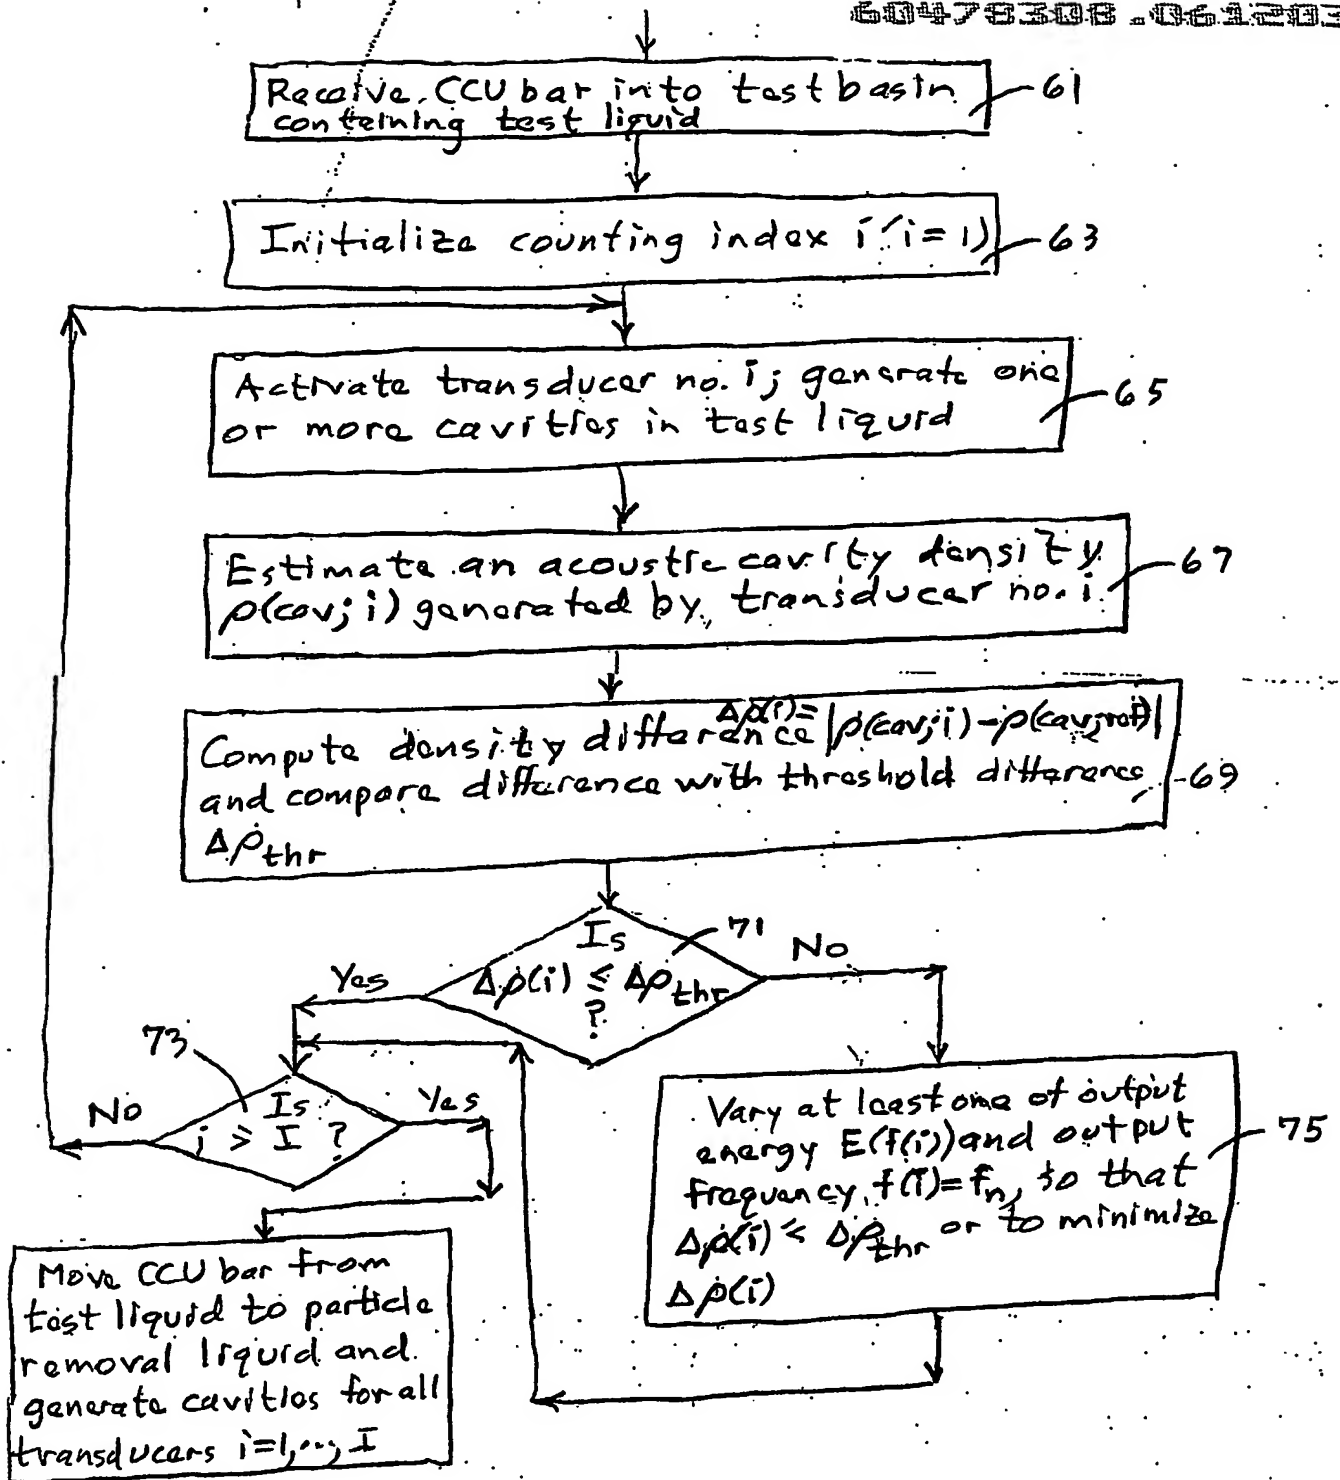 60478308.061203
Receive CCU bar into test basin
containing test liquid
61
Initialize counting index i (i=1)
63
Activate transducer no. i; generate one
or more cavities in test liquid
65
Estimate an acoustic cavity density
ρ(cav; i) generated by transducer no. i
67
Δρ(i)=
Compute density difference |ρ(cav;i)-ρ(cav;ref)|
and compare difference with threshold difference
Δρthr
69
Is
Δρ(i) ≤ Δρthr
?
71
Yes
No
73
Is
i ≥ I ?
No
Yes
Vary at least one of output
energy E(f(i)) and output
frequency, f(i)=fn, so that
Δρ(i) ≤ Δρthr or to minimize
Δρ(i)
75
Move CCU bar from
test liquid to particle
removal liquid and
generate cavities for all
transducers i=1,..., I